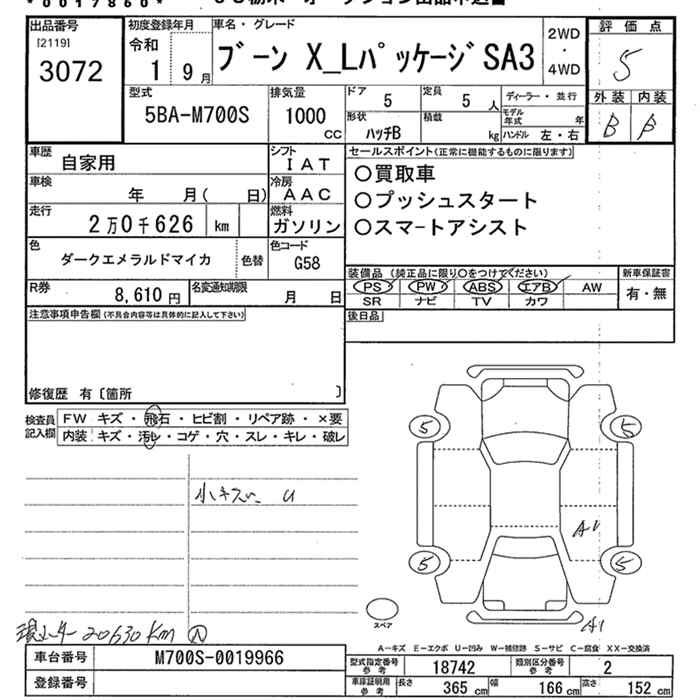 *0017860*
出品番号
[2119]
3072
初度登録年月
令和
1 9月
車名・グレード
ブーン X_Lパッケージ SA3
2WD
・
4WD
評価点
5
外装 内装
B β
型式
5BA-M700S
排気量
1000
CC
ドア
5
定員
5 人
ディーラー・並行
形状
ハッチB
積載
kg
モデル年式 年
ハンドル 左・右
車歴
自家用
シフト
IAT
車検
年 月( 日)
冷房
AAC
走行
2万0千626 km
燃料
ガソリン
色
ダークエメラルドマイカ
色替
色コード
G58
R券
8,610 円
名変通知期限
月 日
セールスポイント(正常に機能するものに限ります)
○買取車
○プッシュスタート
○スマートアシスト
装備品 (純正品に限り○をつけてください)
新車保証書
PS PW ABS エアB AW
有・無
SR ナビ TV カワ
後日品
注意事項申告欄(不具合内容等は具体的に記入して下さい)
修復歴 有〔箇所 〕
検査員
記入欄
FW キズ・飛石・ヒビ割・リペア跡・×要
内装 キズ・汚レ・コゲ・穴・スレ・キレ・破レ
小キズ U
5
5
5
5
A1
A1
スペア
20630Km
A-キズ E-エクボ U-凹み W-補修跡 S-サビ C-腐食 XX-交換済
車台番号
M700S-0019966
登録番号
型式指定番号
参考
18742
類別区分番号
参考
2
車庫証明用
参考
長さ 365 cm
幅 166 cm
高さ 152 cm